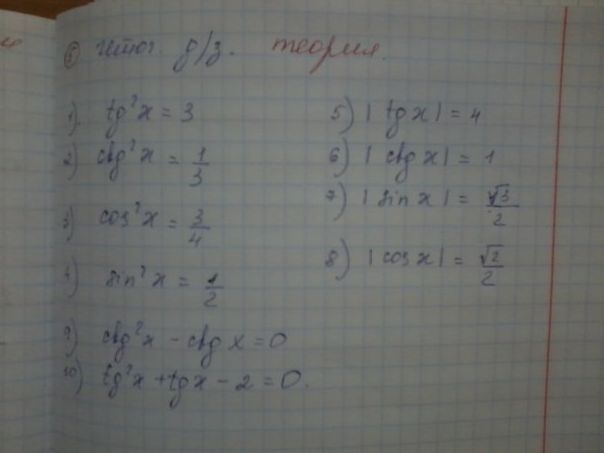 ⑥ Итог д/з. теория.
1) tg²x = 3
2) ctg²x = 1/3
3) cos²x = 3/4
4) sin²x = 1/2
9) ctg²x - ctg x = 0
10) tg²x + tgx - 2 = 0.
5) | tgx | = 4
6) | ctgx | = 1
7) | sin x | = √3/2
8) | cos x | = √2/2